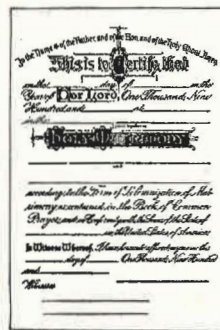 In the Name of the Father, and of the Son, and of the Holy Ghost, Amen.
This is to Certify that
on the day of in the
Year of Our Lord, One Thousand Nine
Hundred and
in the
Holy Matrimony
and
according to the Form of Solemnization of Matrimony
in the Book of Common
Prayer, and in conformity with the Laws of the State of
in the United States of America
In Witness Whereof,
day of One Thousand Nine Hundred
and